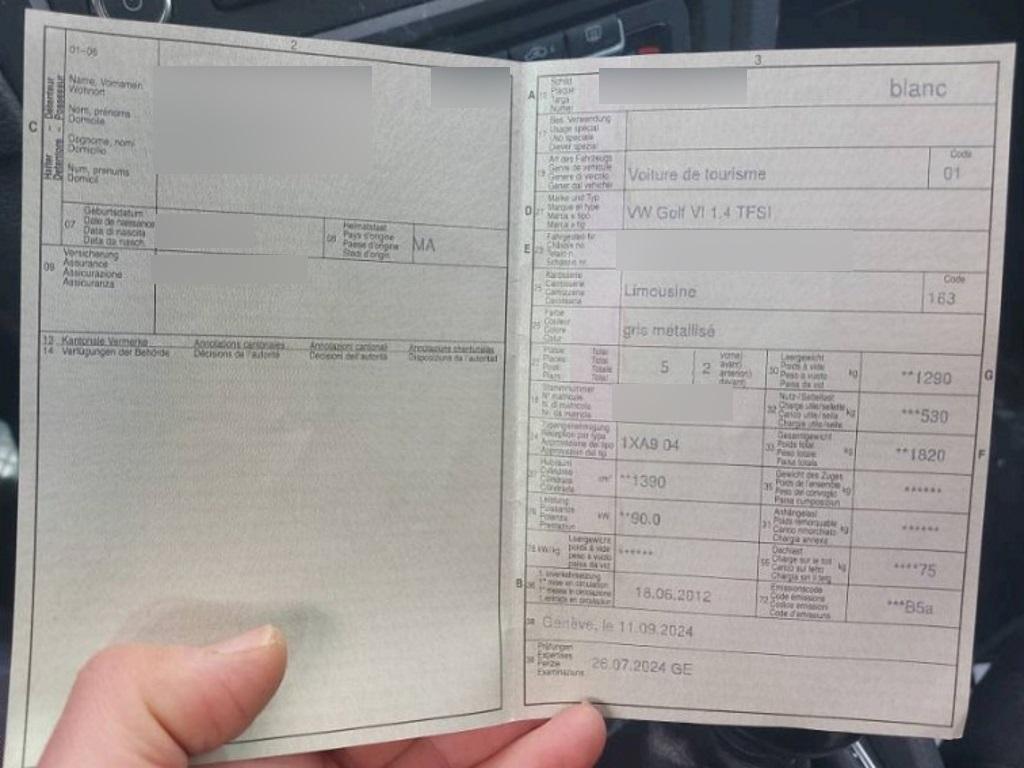 2
01-06
C
Halter
Détenteur
Possessur
Name, Vornamen
Wohnort
Nom, prénoms
Domicile
Cognome, nomi
Domicilio
Num, prenums
Domicil
07
Geburtsdatum
Date de naissance
Data di nascita
Data da nasch.
08
Heimatstaat
Pays d'origine
Paese d'origine
Stadi d'origin
MA
09
Versicherung
Assurance
Assicurazione
Assicuranza
13 Kantonale Vermerke Annotations cantonales Annotazioni cantonali Annotaziuns chantunalas
14 Verfügungen der Behörde Décisions de l'autorité Decisioni dell'autorità Disposiziuns da l'autoritad
3
A 15
Schild
Plaque
Targa
Numer
blanc
17
Bes. Verwendung
Usage spécial
Uso speciale
Diever spezial
19
Art des Fahrzeugs
Genre de véhicule
Genere di veicolo
Gener dal vehichel
Voiture de tourisme
Code
01
D 21
Marke und Typ
Marque et type
Marca e tipo
Marca e tip
VW Golf VI 1.4 TFSI
E 23
Fahrgestell Nr.
Châssis no.
Telaio n.
Schassis nr.
25
Karosserie
Carrosserie
Carrozzeria
Carossaria
Limousine
Code
163
26
Farbe
Couleur
Colore
Colur
gris métallisé
27
Plätze Total
Places Total
Posti Totale
Plazs Total
5
2
vorne)
avant)
anteriori)
davant)
30
Leergewicht
Poids à vide
Peso a vuoto
Paisa da vid
kg
**1290
G
18
Stammnummer
N° matricule
N. di matricola
Nr. da matricla
32
Nutz-/Sattellast
Charge utile/sellette
Carico utile/sella
Chargia utila/sella
kg
***530
24
Typengenehmigung
Réception par type
Approvazione del tipo
Approvaziun dal tip
1XA9 04
33
Gesamtgewicht
Poids total
Peso totale
Paisa totala
kg
**1820
F
37
Hubraum
Cylindrée
Cilindrata
Cilindrada
cm³
**1390
35
Gewicht des Zuges
Poids de l'ensemble
Peso del convoglio
Paisa cumposiziun
kg
******
76
Leistung
Puissance
Potenza
Prestaziun
kW
**90.0
31
Anhängelast
Poids remorquable
Carico rimorchiato
Chargia annexa
kg
******
78 kW/kg
Leergewicht
poids à vide
peso a vuoto
paisa da vid
******
55
Dachlast
Charge sur le toit
Carico sul tetto
Chargia sin il tetg
kg
****75
B 36
1. Inverkehrsetzung
1re mise en circulation
1a messa in circolazione
1. entrada en circulaziun
18.06.2012
72
Emissionscode
Code émissions
Codice emissioni
Code d'emissiuns
***B5a
38
Genève, le 11.09.2024
39
Prüfungen
Expertises
Perizie
Examinaziuns
26.07.2024 GE